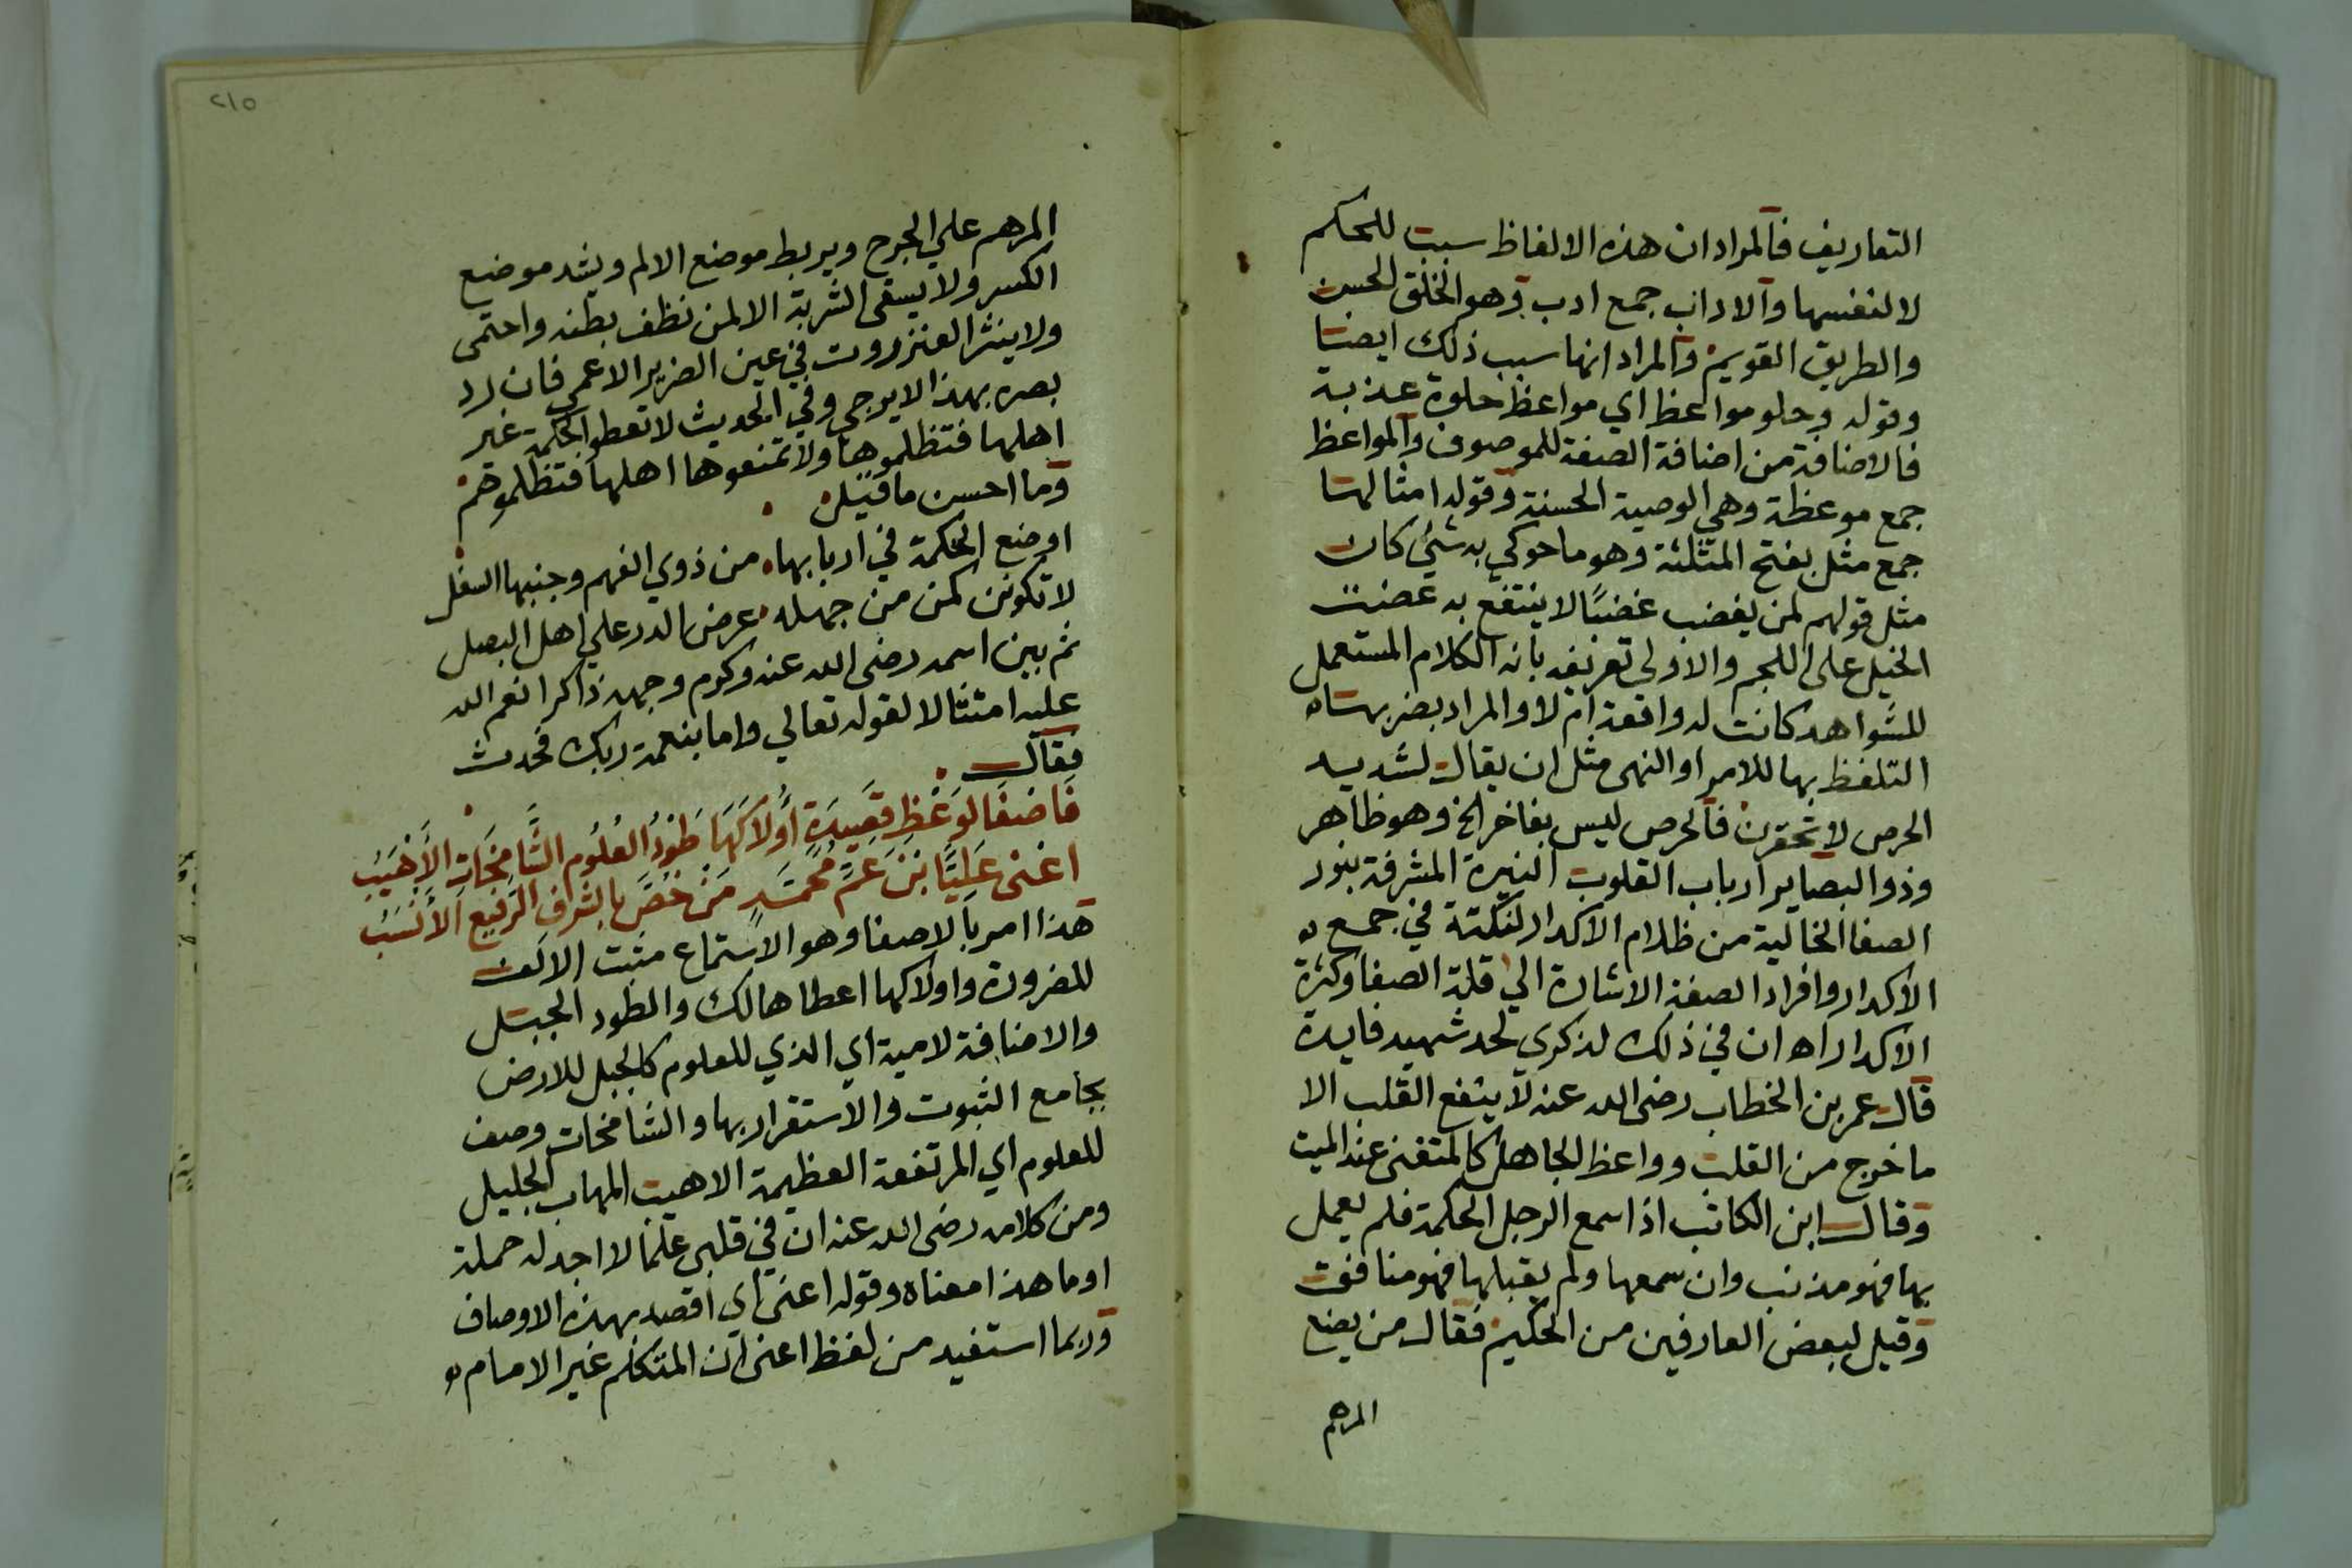 التعاريف فالمراد ان هذه الالفاظ سبب للحكم
لا لنفسها والاداب جمع ادب وهو الخلق الحسن
والطريق القويم والمراد انها سبب ذلك ايضا
وقوله وحلو مواعظ اي مواعظ حلوة عذبة
فالاضافة من اضافة الصفة للموصوف والمواعظ
جمع موعظة وهي الوصية الحسنة وقوله امثالها
جمع مثل بفتح المثلثة وهو ما حوكي به شئ كان
مثل قولهم لمن يغضب غضبًا لا ينتفع به غضب
الخيل على اللجم والاولى تعريفه بانه الكلام المستعمل
للشواهد كانت له واقعة ام لا والمراد بضربها
التلفظ بها للامر او النهى مثل ان يقال لشديد
الحرص لا تحقرن فالحرص ليس بفاخر الخ وهو ظاهر
وذو البصاير ارباب القلوب النيرة المشرقة بنور
الصفا الخالية من ظلام الاكدار لنكتة في جمع
الاكدار وافراد الصفة الاشارة الي قلة الصفا وكثرة
الاكدار اه ان في ذلك لذكري لحد شهيد فايدة
قال عمر بن الخطاب رضى الله عنه لا ينفع القلب الا
ما خرج من القلب وواعظ الجاهل كالمتغنى عند الميت
وقال ابن الكاتب اذا سمع الرجل الحكمة فلم يعمل
بها فهو مذنب وان سمعها ولم يقبلها فهو منافق
وقيل لبعض العارفين من الحكيم فقال من يضع
المرهم
٢١٥
المرهم علي الجرح ويربط موضع الالم ويشد موضع
الكسر ولا يسقى الشربة الا لمن نظف بطنه واحتمى
ولا ينثر العنزروت في عين الضرير الاعمى فان رد
بصره بهذا لا يوجي وفي الحديث لا تعطوا الحكمة غير
اهلها فتظلموها ولا تمنعوها اهلها فتظلموهم
وما احسن ما قيل
اوضع الحكمة في اربابها من ذوي الفهم وجنبها السفل
لا تكونن كمن من جهله عرض الدر علي اهل البصل
ثم بين اسمه رضى الله عنه وكرم وجهه ذاكرا نعم الله
عليه امتثالا لقوله تعالي واما بنعمة ربك فحدث
فقال
فَاصْغَا لوَعْظِ قَصِيدَةٍ أَوْلاَكَهَا طَوْدُ العُلُومِ الشَّامِخَاتِ الأَهْيَبُ
اعْنى عَلِيًّا بْنَ عَمِّ مُحَمَّدٍ مَنْ خُصَّ بالشَّرَفِ الرَّفيعِ الأَنْسَبُ
هذا امر بالاصغا وهو الاستماع مثبت الالف
للضرورة واولاكها اعطاها لك والطود الجبل
والاضافة لامية اي الذي للعلوم كالجبل للارض
بجامع الثبوت والاستقرار بها والشامخات وصف
للعلوم اي المرتفعة العظيمة الاهيب المهاب الجليل
ومن كلامه رضى الله عنه ان في قلبي علما لا اجد له حملة
او ما هذا معناه وقوله اعني اي اقصد بهذه الاوصاف
وربما استفيد من لفظ اعنى ان المتكلم غير الامام